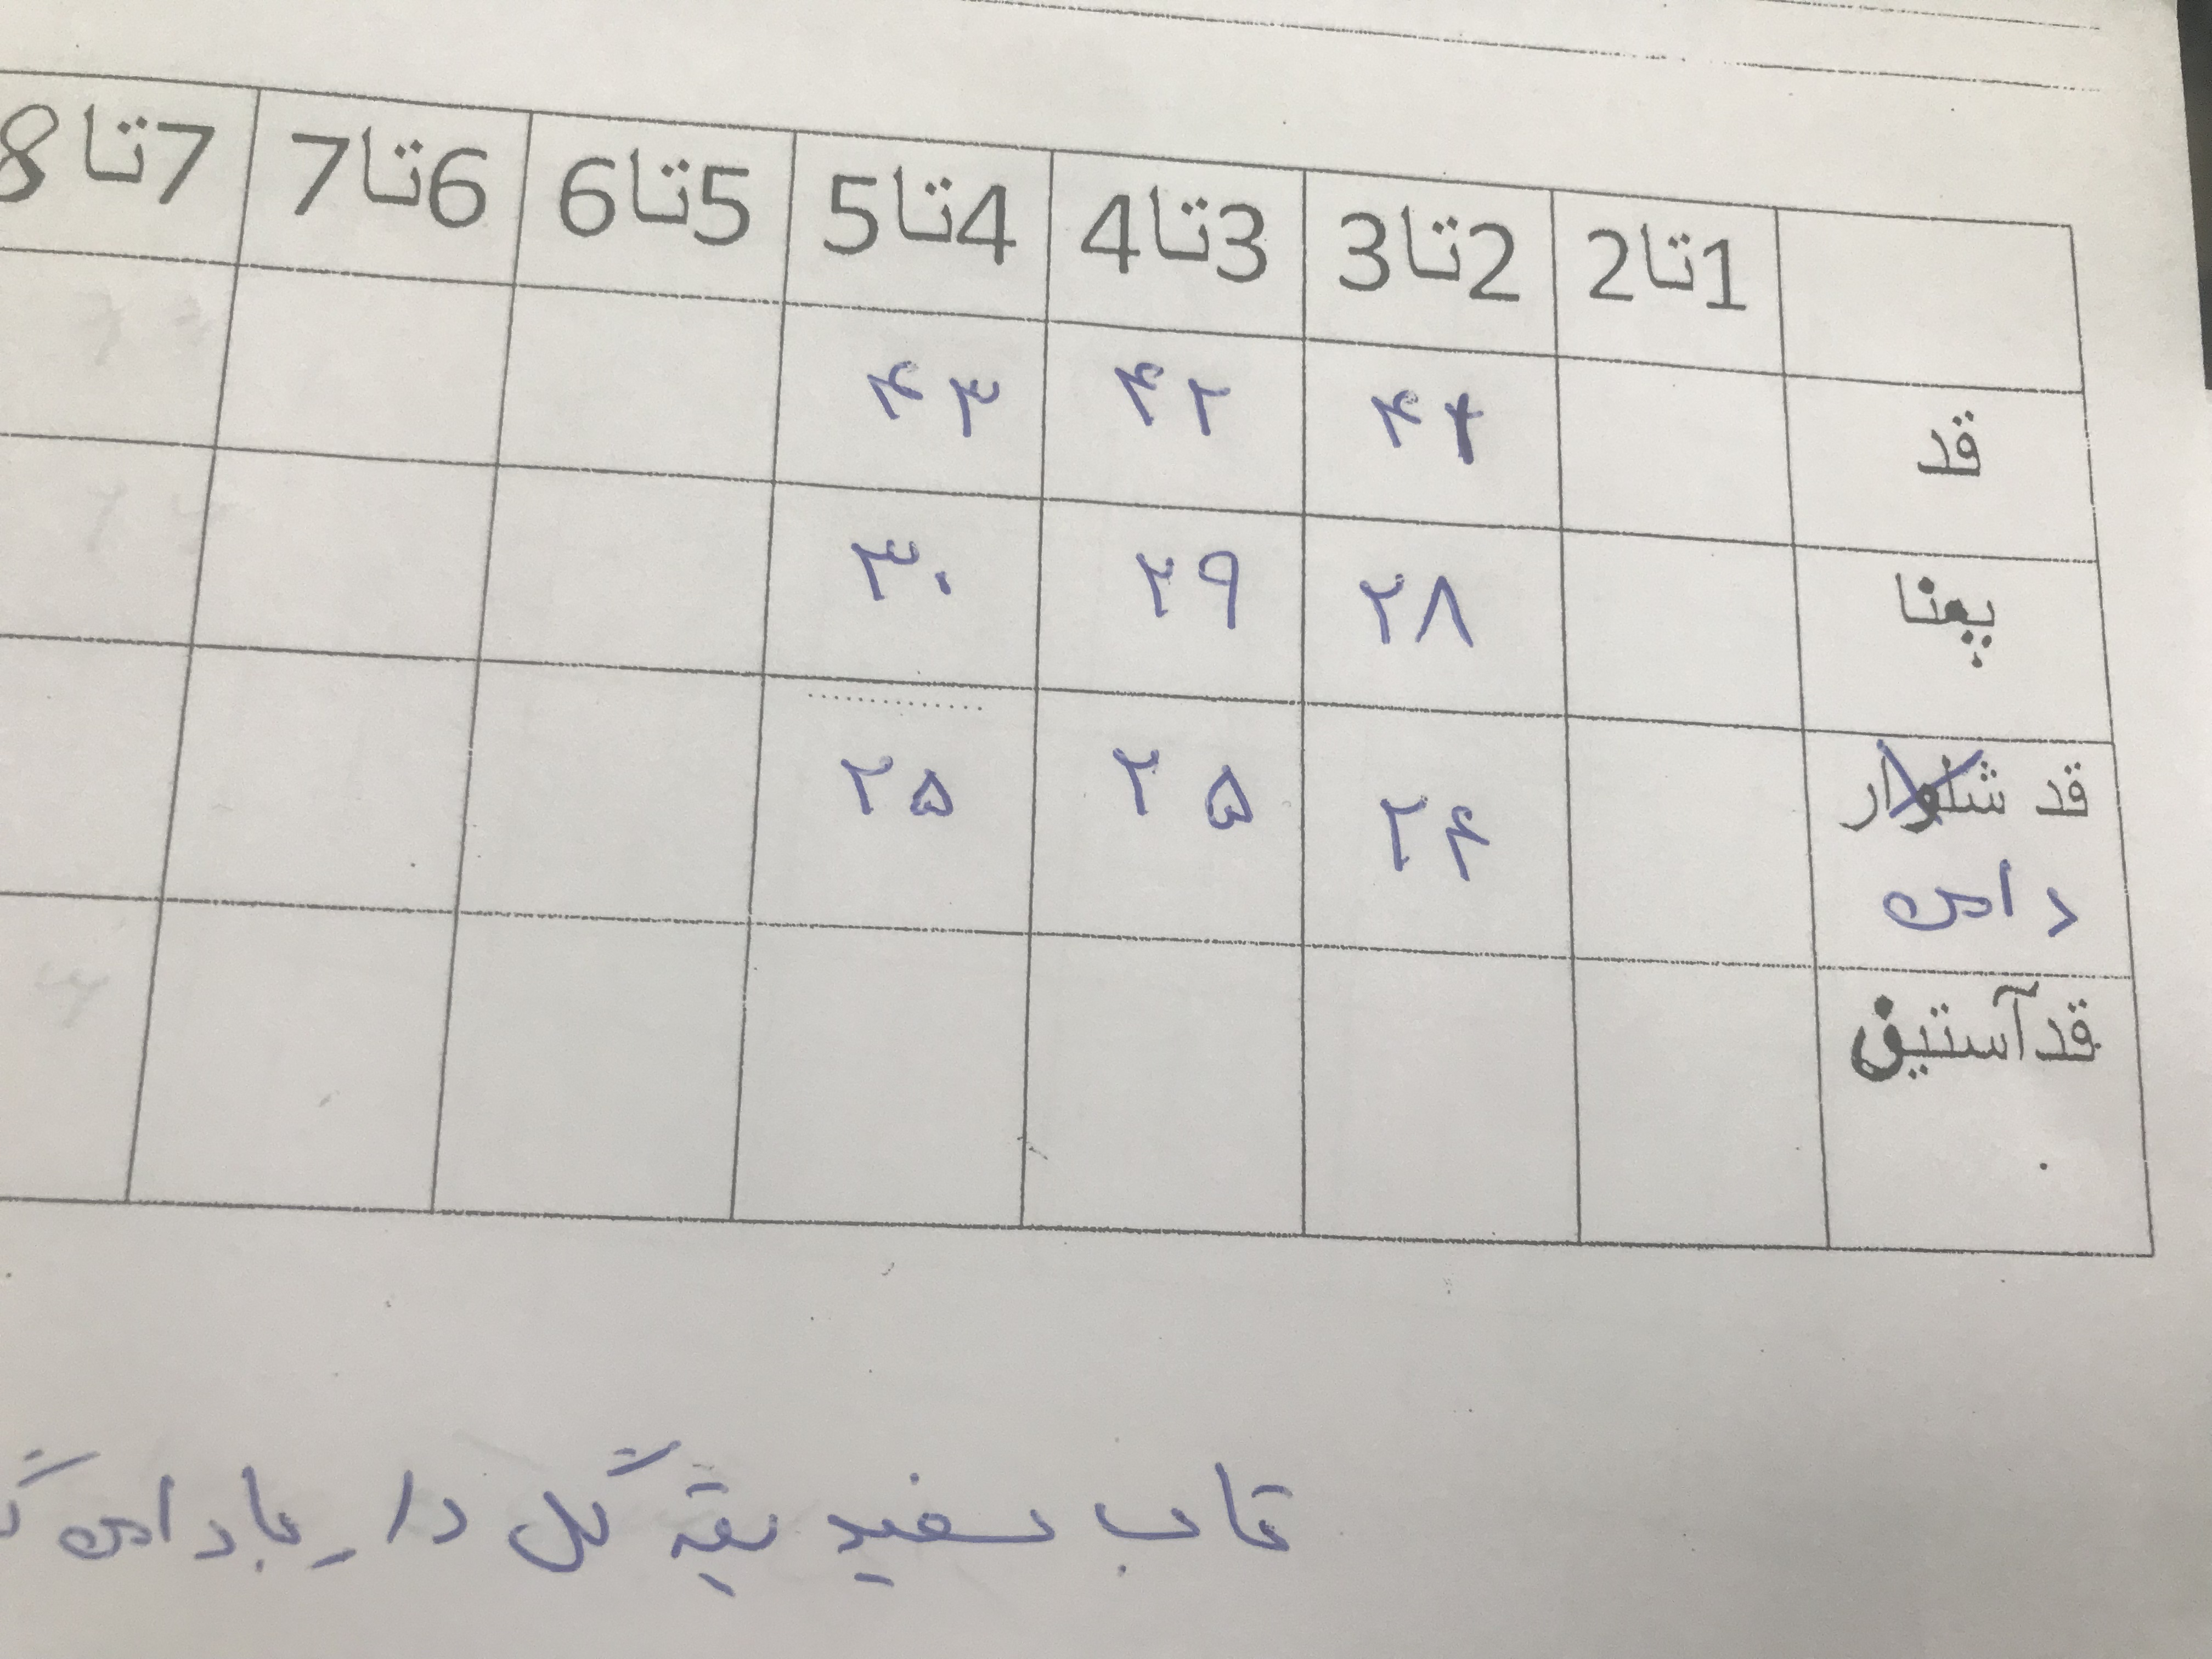 1تا2 2تا3 3تا4 4تا5 5تا6 6تا7 7تا8
قد ۴۲ ۴۳
پهنا ۲۸ ۲۹ ۳۰
قد شلوار ۲۴ ۲۵ ۲۵
دامن
قدآستین
تاب سفید یقه گل دار با دامن